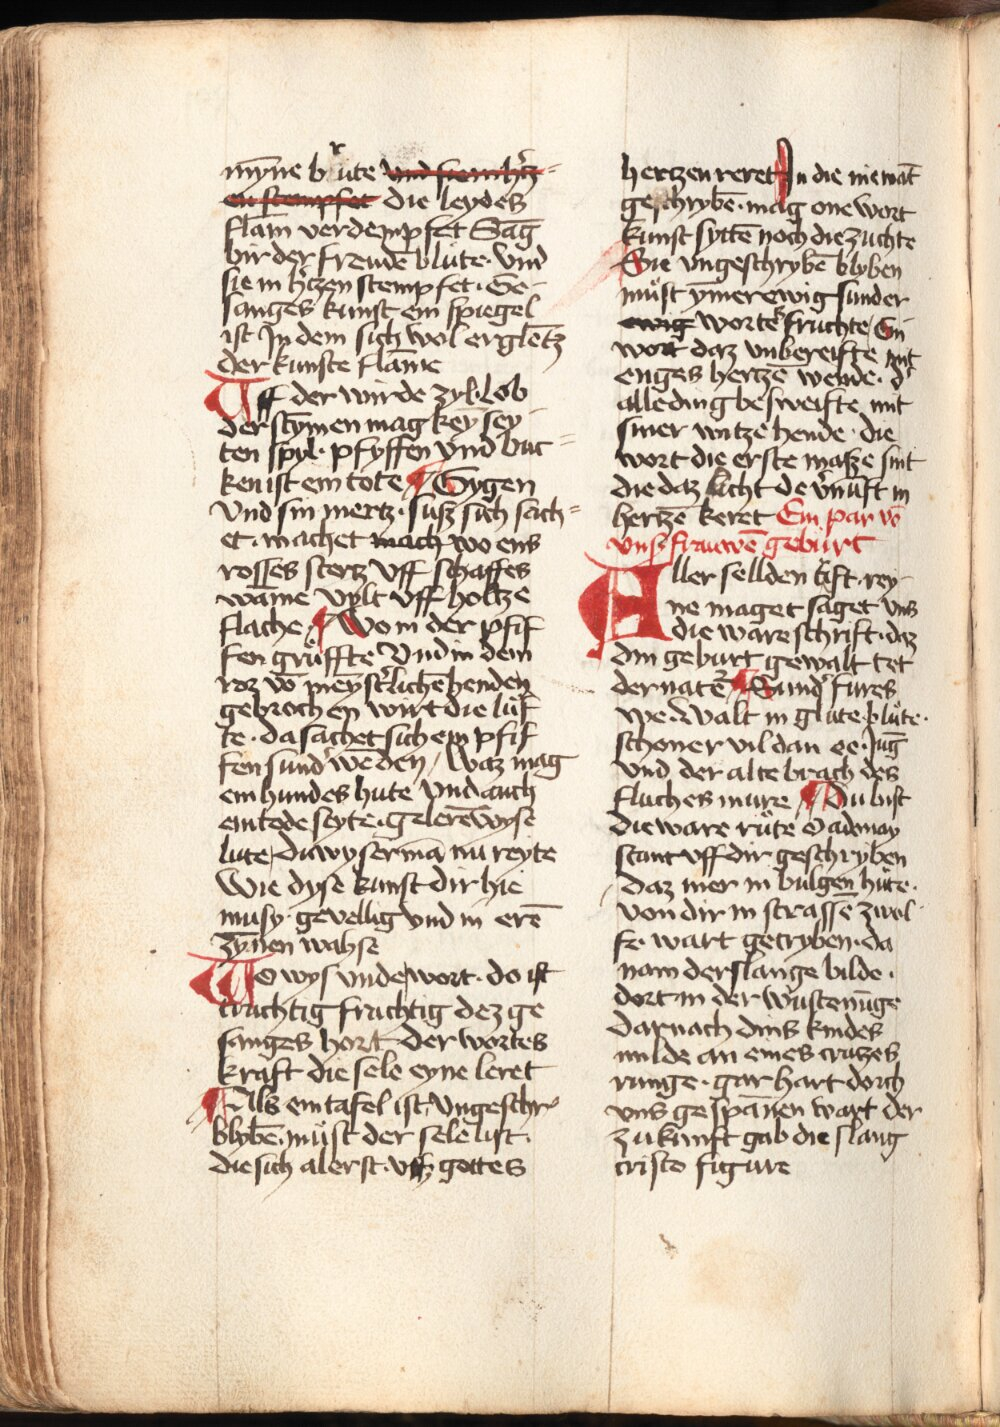 myñe brute und sie in hertz=
en stempfet die leydes
flam̄ verdempfet Sag
bir der freudē blute. Vnd
sie in h'tzen stempfet. Ge-
sanges kunst ein spiegel
ist In dem sich wol erglētz
der kunste flam̄e
Vff der wirde zyl. Lob
der stym̄en mag key sey
ten spyl. pfyffen vnd buc=
ken ist ein tote Gygen
vnd sin mertz. suß sich sach=
et. machet mach wo ens
rosses stertz vff schaffes
wam̄e vylt vff holtze
flache. Wo in der pfif
fen gruffte Vnd in dem
roz vō meysterlichē henden
gebrochen wirt die luf
te. da sachet sich ein pfif
fen sund' wēden, Waz mag
ein hundes hute vnd auch
ein tode seyte. gelerē wyse
lute, du wyser mā nu reyte
Wie dyse kunst dir hie
musy. gevellig vnd in erē
zynen wahse
Wo wys vnde wort. do ist
truchtig fruchtig dez ge
sanges hort der wortes
kraft die sele eyne leret
Als ein tafel ist vngeschr
blybē. must der sele list.
die sich alerst. vß gottes
hertzen reret In die nieman̄t
geschrybē. mag one wort
kunst sytte noch die zuchte
Sie vngeschrybē blyben
must ymer ewig sunder
ewig wortes fruchte Ein
wort daz vnbereifte mit
enges hertzē wende. d'
alle ding besweifte mit
siner witze hende. die
wort die erste maße sint
die daz licht de v'nuft in
hertzē keret Ein par vō
vnß frauwē geburt
Aller sellden gift. rey-
ne maget saget vns
die ware schrift. daz
din geburt gewalt tet
der naterē Sund' fures
we. walt in glute plute.
schoner vil dan ee. Jug
vnd der alte brach des
fluches mure Du bist
die ware rute O adonay
stant vff dir geschryben
daz mer in bulgen hute.
von dir in strassē zwol-
fe. wart getryben. da
nam der slange bilde.
dort in der wustenūge
darnach dins kindes
milde an eines crutzes
range. gar hart dorch
vns gespān̄en wart der
zukunft gab die slang
cristo figure